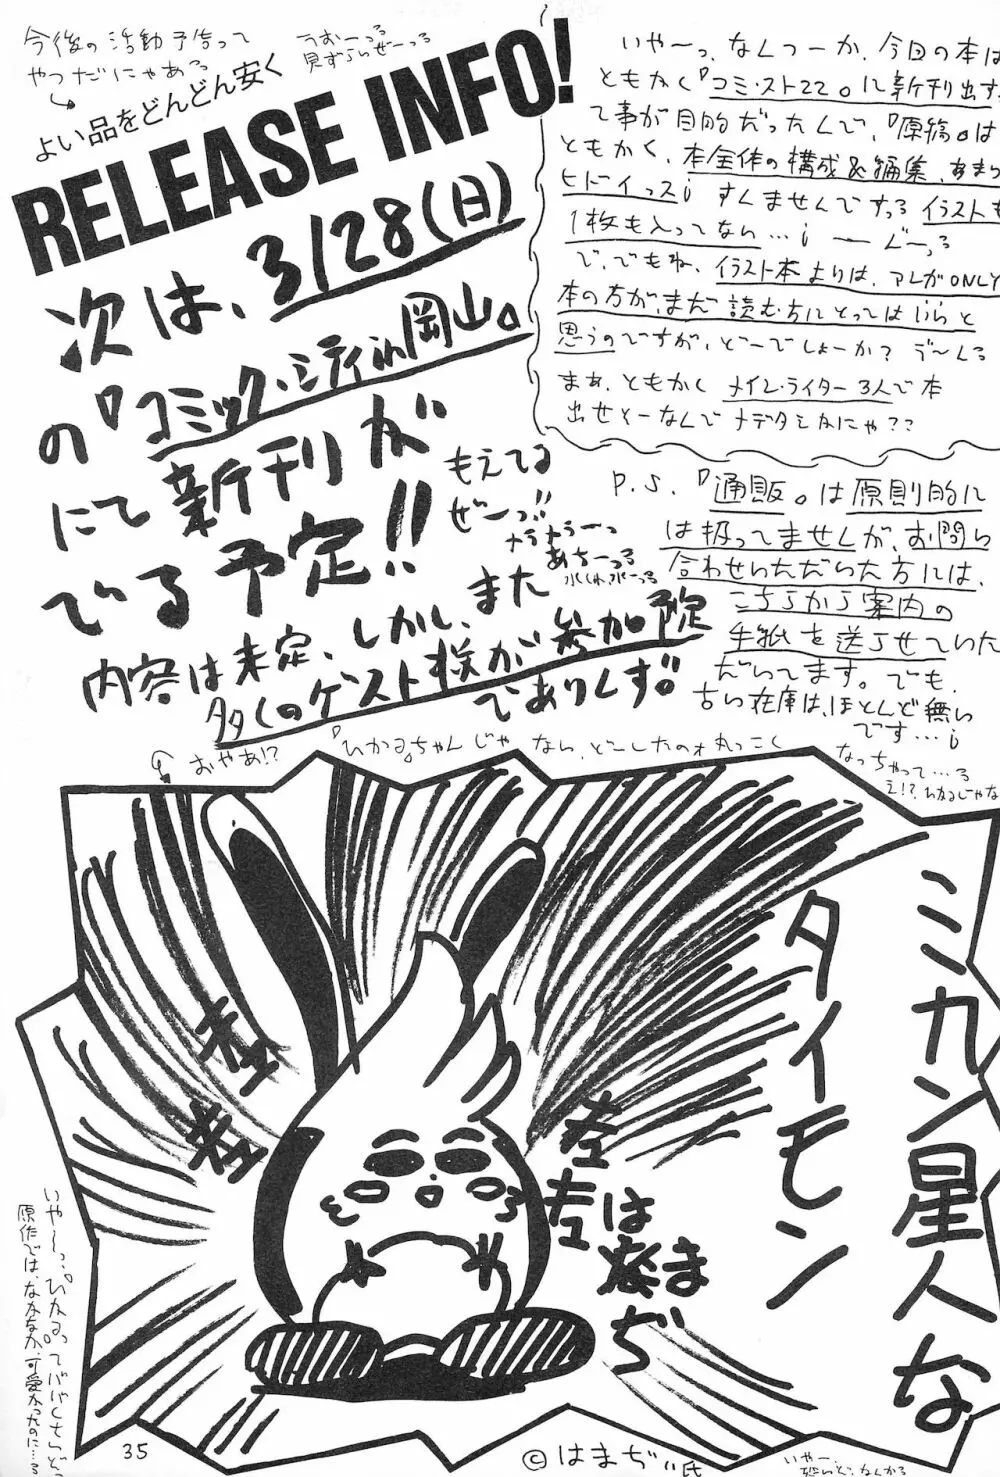 今後の活動予告って
やつだにゃある
うおーっる
見ずらいぜーっる
よい品をどんどん安く
RELEASE INFO!
次は、3/28(日)
の『コミック・シティin岡山』
にて新刊が
でる予定!!
もえてる
ぜーっ!!
メラメラーっ
あちーっる
内容は未定、しかし、また
多くのゲスト様が参加予定
でありんす。
いやーっ、なんつーか、今回の本は
ともかく『コミ・スト22』に新刊出す
て事が目的だったんで、『原稿』は
ともかく、本全体の構成&編集、あまり
ヒドイっスi すんませんですっる イラストも
1枚も入ってない…i ー ぐーっる
で、でもね、イラスト本よりは、アレがONLY
本の方が、まだ読む方にとってはいいと
思うのですが、どーでしょーか? う゛~んる
まぁ、ともかく メイン・ライター 3人で本
出せたーなんで メデタシかにゃ??
P.S.『通販』は原則的に
は扱ってませんが、お問い
合わせいただいた方には、
こちらから案内の
手紙を送らせていた
だいてます。でも、
古い在庫は、ほとんど無い
です…i
おやあ!?
『ひかる』ちゃんじゃない、どーしたのォ 丸っこく
なっちゃって…る
え!?ひかるじゃな
ミカン星人な
タイモン
はまぢ
いや~っ、『ひかる』って
原作では、なかなか、可愛かったのに…る
35
©はまぢぃ氏